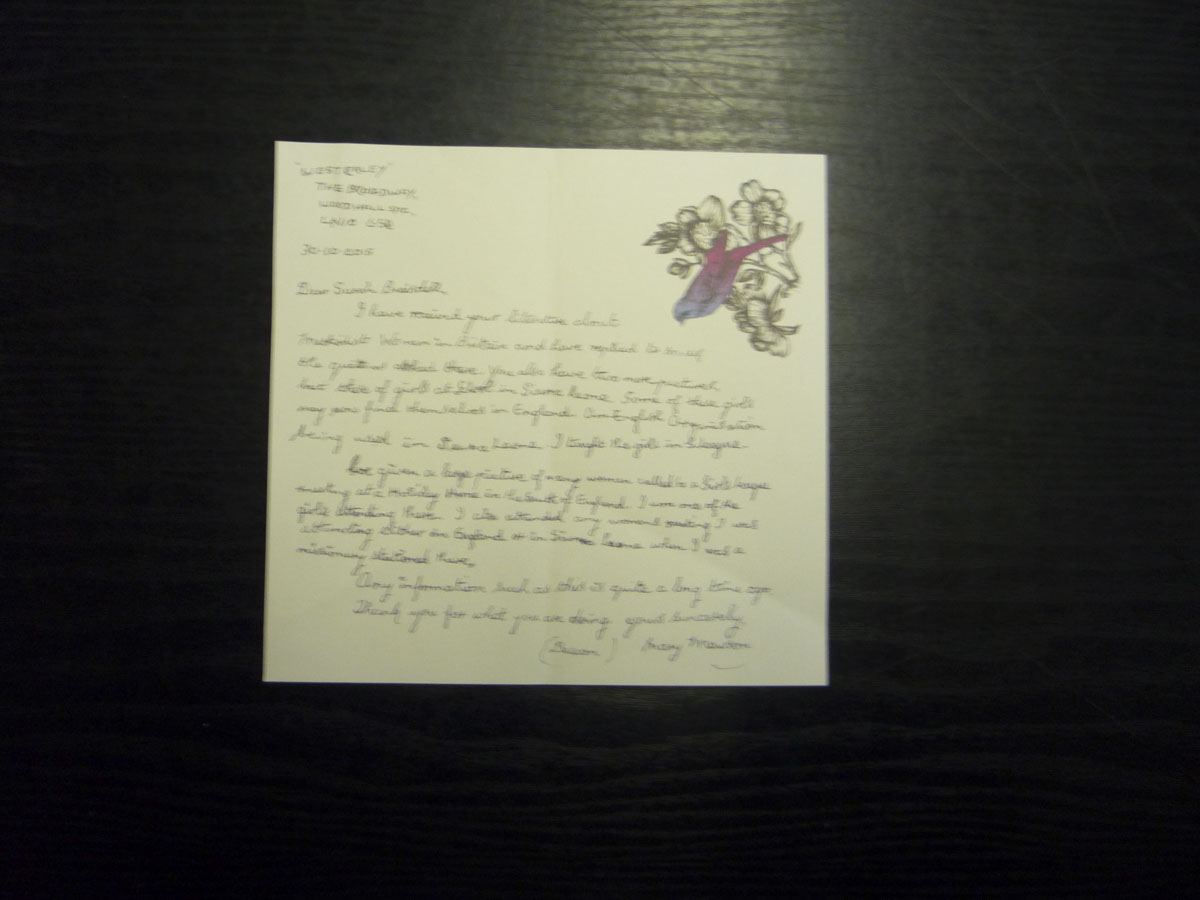 "WESTERLEY"
THE BROADWAY,
WOODHALL SPA,
LN10
Dear Sarah
I have received your literature about
Methodist Women in Britain and have replied to
the questions asked there. You also have two more pictures,
but these of girls at School in Sierra Leone. Some of these girls
may now find themselves in England. Our English Organisation
being used in Sierra Leone. I taught the girls in S. Leone
given a large picture of many women called to a Girls League
meeting at a Holiday Home in the South of England. I am one of the
girls attending there. I also attended any womens meeting I was
attending either in England or in Sierra Leone when I was a
missionary stationed there.
Any information such as this is quite a long time ago.
Thank you for what you are doing. yours sincerely,
(Deacon) Mary